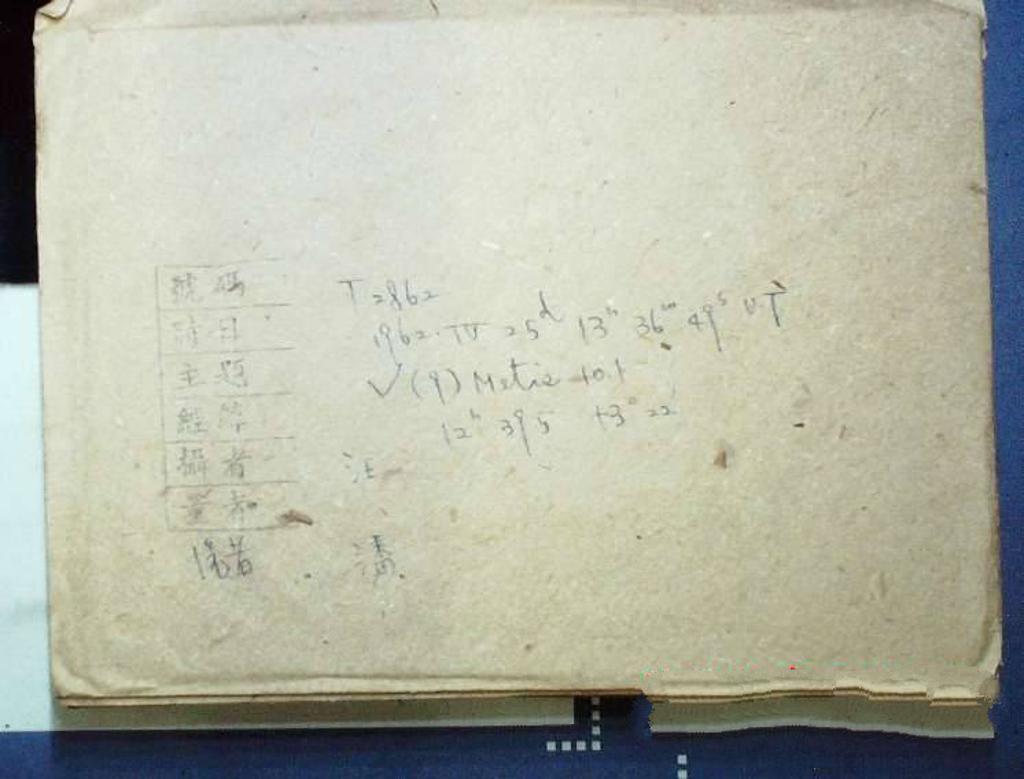 號碼 T 2862
時日 1962. IV 25ᵈ 13ʰ 36ᵐ 49ˢ U.T
主題 ✓ (9) Metis 10.1
經緯 12ʰ 39 5 +3° 22'
攝者 汪
量者
歸者 潘